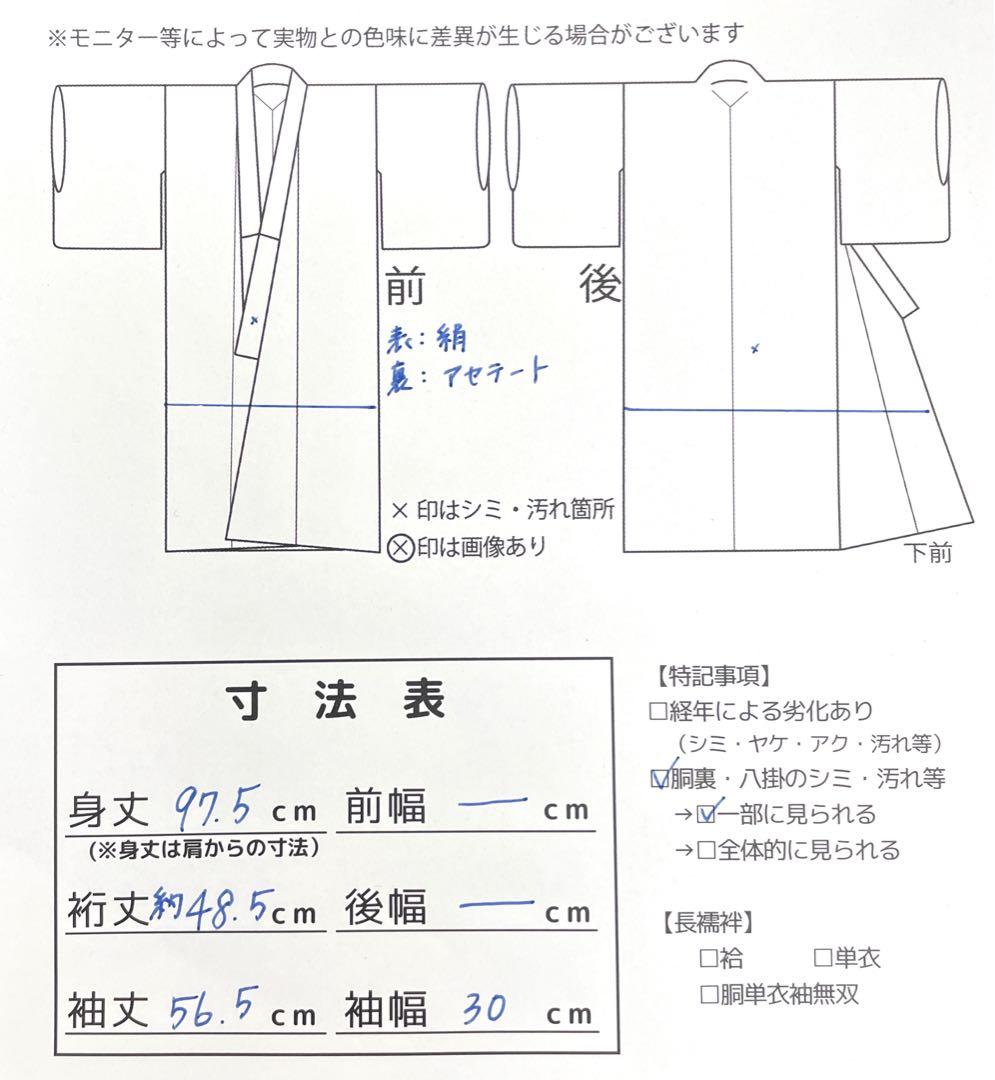 ※モニター等によって実物との色味に差異が生じる場合がございます
前
後
表：絹
裏：アセテート
× 印はシミ・汚れ箇所
⊗印は画像あり
下前
寸法表
身丈 97.5 cm 前幅 — cm
(※身丈は肩からの寸法)
裄丈 約48.5cm 後幅 — cm
袖丈 56.5 cm 袖幅 30 cm
【特記事項】
□経年による劣化あり
（シミ・ヤケ・アク・汚れ等）
☑胴裏・八掛のシミ・汚れ等
→☑一部に見られる
→□全体的に見られる
【長襦袢】
□袷 □単衣
□胴単衣袖無双